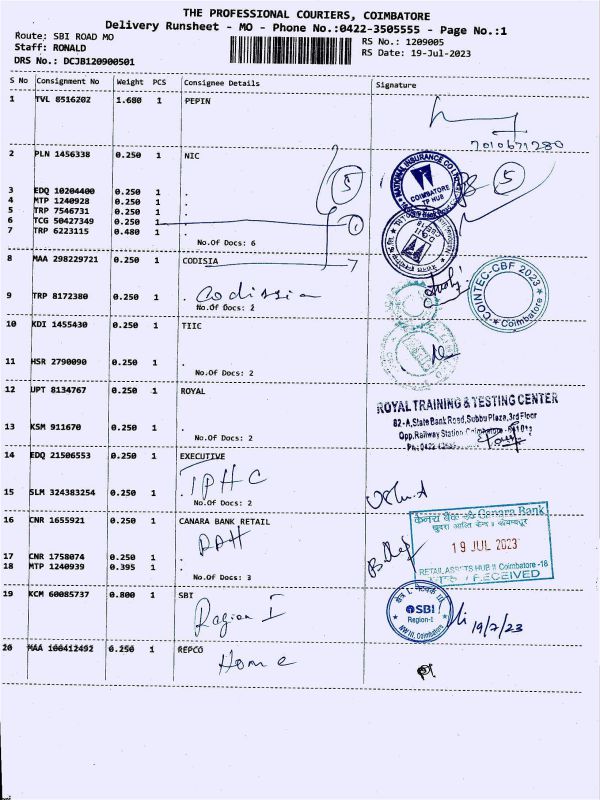 THE PROFESSIONAL COURIERS, COIMBATORE
Delivery Runsheet - MO - Phone No.:0422-3505555 - Page No.:1
Route: SBI ROAD MO
RS No.: 1209005
Staff: RONALD
RS Date: 19-Jul-2023
DRS No.: DCJB120900501
S No Consignment No Weight PCS Consignee Details Signature
1 TVL 8516202 1.680 1 PEPIN
7010671280
2 PLN 1456338 0.250 1 NIC
NATIONAL INSURANCE CO LTD
COIMBATORE
TP HUB
5
5
3 EDQ 10204400 0.250 1 .
4 MTP 1240928 0.250 1 .
5 TRP 7546731 0.250 1 .
6 TCG 50427349 0.250 1 .
1
7 TRP 6223115 0.480 1 .
No.Of Docs: 6
8 MAA 298229721 0.250 1 CODISIA
COINTEC-CBF 2023
Coimbatore
9 TRP 8172380 0.250 1 . Codissia
No.Of Docs: 2
10 KDI 1455430 0.250 1 TIIC
11 HSR 2790090 0.250 1 .
No.Of Docs: 2
12 UPT 8134767 0.250 1 ROYAL
ROYAL TRAINING & TESTING CENTER
82-A, State Bank Road, Subbu Plaza, 3rd Floor
Opp. Railway Station
13 KSM 911670 0.250 1 .
No.Of Docs: 2
14 EDQ 21506553 0.250 1 EXECUTIVE
IPHC
15 SLM 324383254 0.250 1 .
No.Of Docs: 2
16 CNR 1655921 0.250 1 CANARA BANK RETAIL
RAH
केनरा बैंक Canara Bank
19 JUL 2023
RETAIL ASSETS HUB II Coimbatore -18
RECEIVED
17 CNR 1758074 0.250 1 .
18 MTP 1240939 0.395 1 .
No.Of Docs: 3
19 KCM 60085737 0.800 1 SBI
Region I
SBI
Region-I
Coimbatore
19/7/23
20 MAA 100412492 0.250 1 REPCO
Home